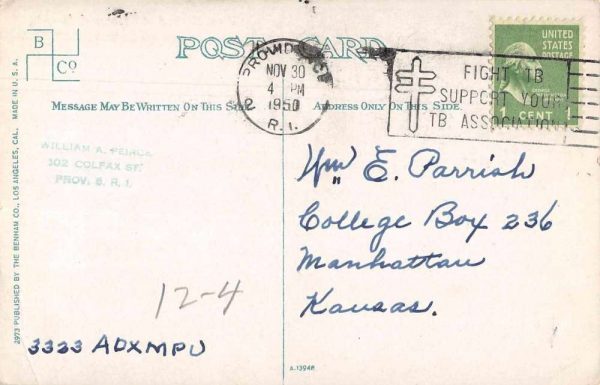 B
Co
POST CARD
PROVIDENCE
NOV 30
4 PM
1950
R. I.
2
FIGHT TB
SUPPORT YOUR
TB ASSOCIATION
UNITED
STATES
POSTAGE
CENT 1
MESSAGE MAY BE WRITTEN ON THIS SIDE
ADDRESS ONLY ON THIS SIDE
WILLIAM A. PEIRCE
102 COLFAX ST.
PROV. 5, R. I.
Wm E. Parrish
College Box 236
Manhattan
Kansas.
12-4
3333 ADXMPU
2973 PUBLISHED BY THE BENHAM CO., LOS ANGELES, CAL. MADE IN U. S. A.
A-13948